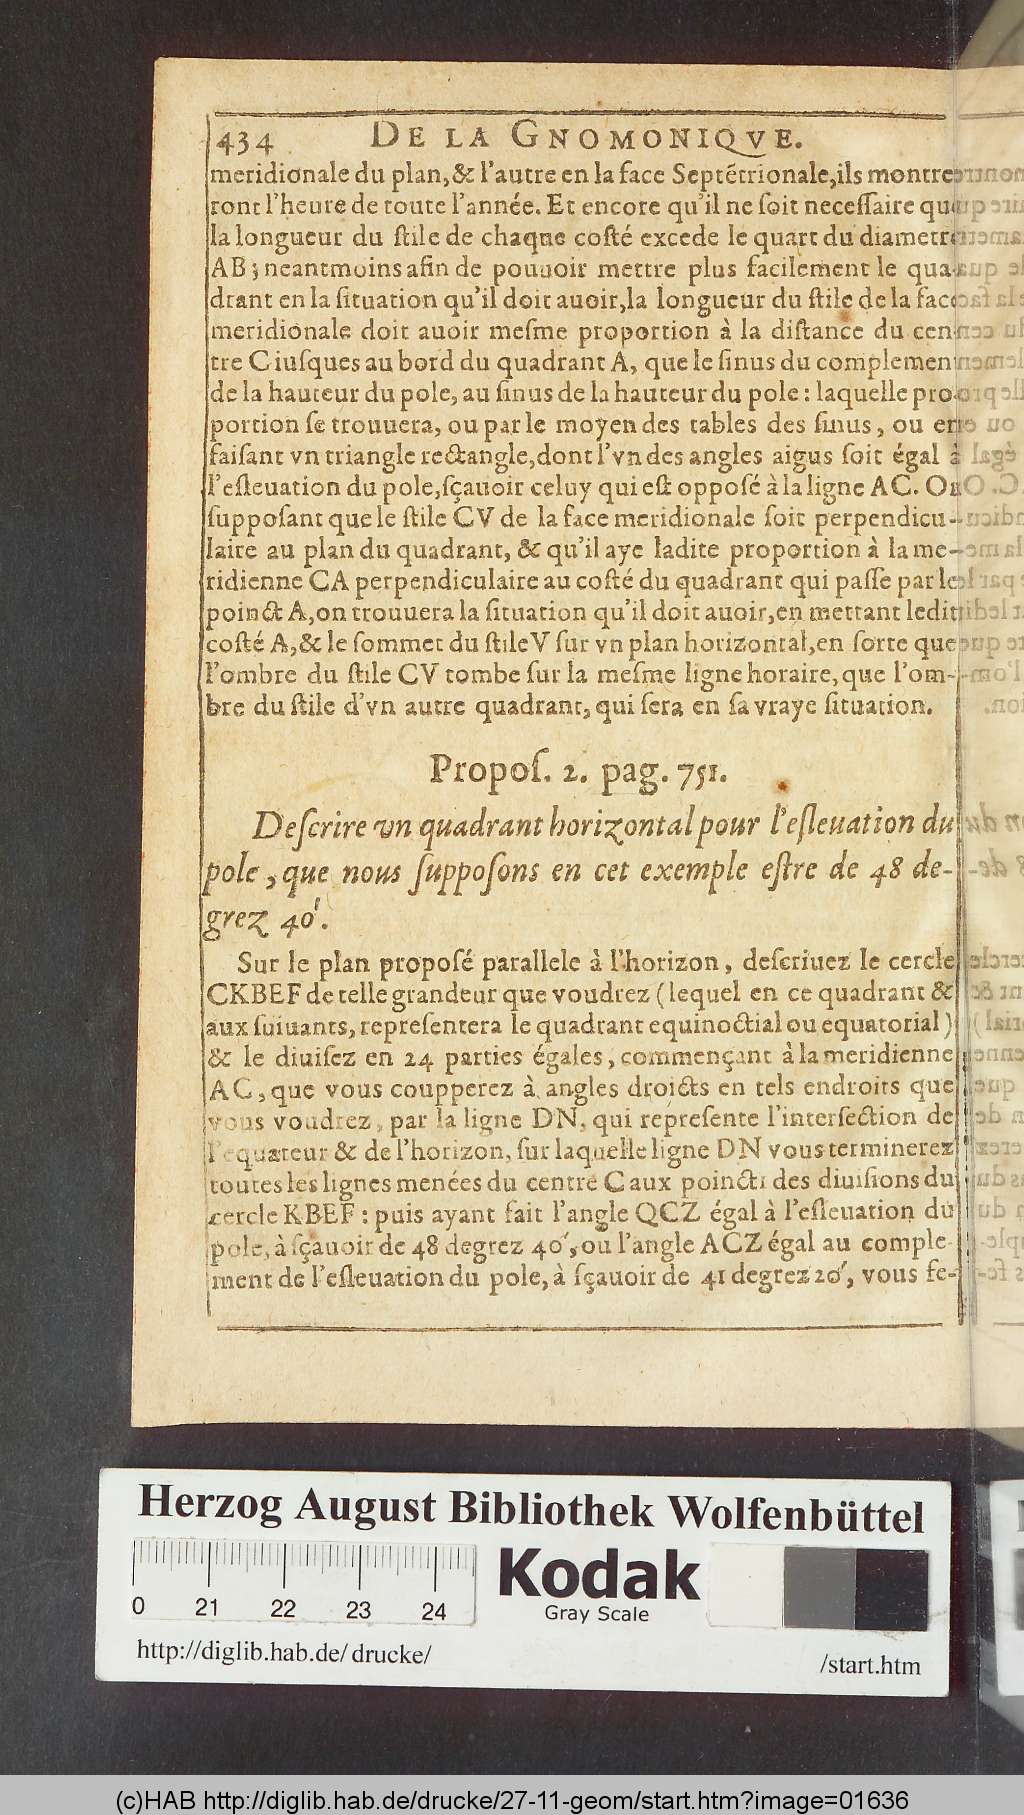 434 DE LA GNOMONIQVE.
meridionale du plan, & l'autre en la face Septētrionale, ils montre-
ront l'heure de toute l'année. Et encore qu'il ne ſoit neceſſaire que
la longueur du ſtile de chaque coſté excede le quart du diametre
AB; neantmoins afin de pouuoir mettre plus facilement le qua-
drant en la ſituation qu'il doit auoir, la longueur du ſtile de la face
meridionale doit auoir meſme proportion à la diſtance du cen-
tre C iuſques au bord du quadrant A, que le ſinus du complemen
de la hauteur du pole, au ſinus de la hauteur du pole: laquelle pro-
portion ſe trouuera, ou par le moyen des tables des ſinus, ou en
faiſant vn triangle rectangle, dont l'vn des angles aigus ſoit égal à
l'eſleuation du pole, ſçauoir celuy qui eſt oppoſé à la ligne AC. Or
ſuppoſant que le ſtile CV de la face meridionale ſoit perpendicu-
laire au plan du quadrant, & qu'il aye ladite proportion à la me-
ridienne CA perpendiculaire au coſté du quadrant qui paſſe par le
poinct A, on trouuera la ſituation qu'il doit auoir, en mettant ledit
coſté A, & le ſommet du ſtile V ſur vn plan horizontal, en ſorte que
l'ombre du ſtile CV tombe ſur la meſme ligne horaire, que l'om-
bre du ſtile d'vn autre quadrant, qui ſera en ſa vraye ſituation.
Propoſ. 2. pag. 751.
Deſcrire vn quadrant horizontal pour l'eſleuation du
pole, que nous ſuppoſons en cet exemple eſtre de 48 de-
grez 40′.
Sur le plan propoſé parallele à l'horizon, deſcriuez le cercle
CKBEF de telle grandeur que voudrez (lequel en ce quadrant &
aux ſuiuants, repreſentera le quadrant equinoctial ou equatorial)
& le diuiſez en 24 parties égales, commençant à la meridienne
AC, que vous coupperez à angles droicts en tels endroits que
vous voudrez, par la ligne DN, qui repreſente l'interſection de
l'equateur & de l'horizon, ſur laquelle ligne DN vous terminerez
toutes les lignes menées du centre C aux poincts des diuiſions du
cercle KBEF: puis ayant fait l'angle QCZ égal à l'eſleuation du
pole, à ſçauoir de 48 degrez 40′, ou l'angle ACZ égal au comple-
ment de l'eſleuation du pole, à ſçauoir de 41 degrez 20′, vous fe-
Herzog August Bibliothek Wolfenbüttel
0 21 22 23 24
Kodak
Gray Scale
http://diglib.hab.de/ drucke/
/start.htm
(c)HAB http://diglib.hab.de/drucke/27-11-geom/start.htm?image=01636